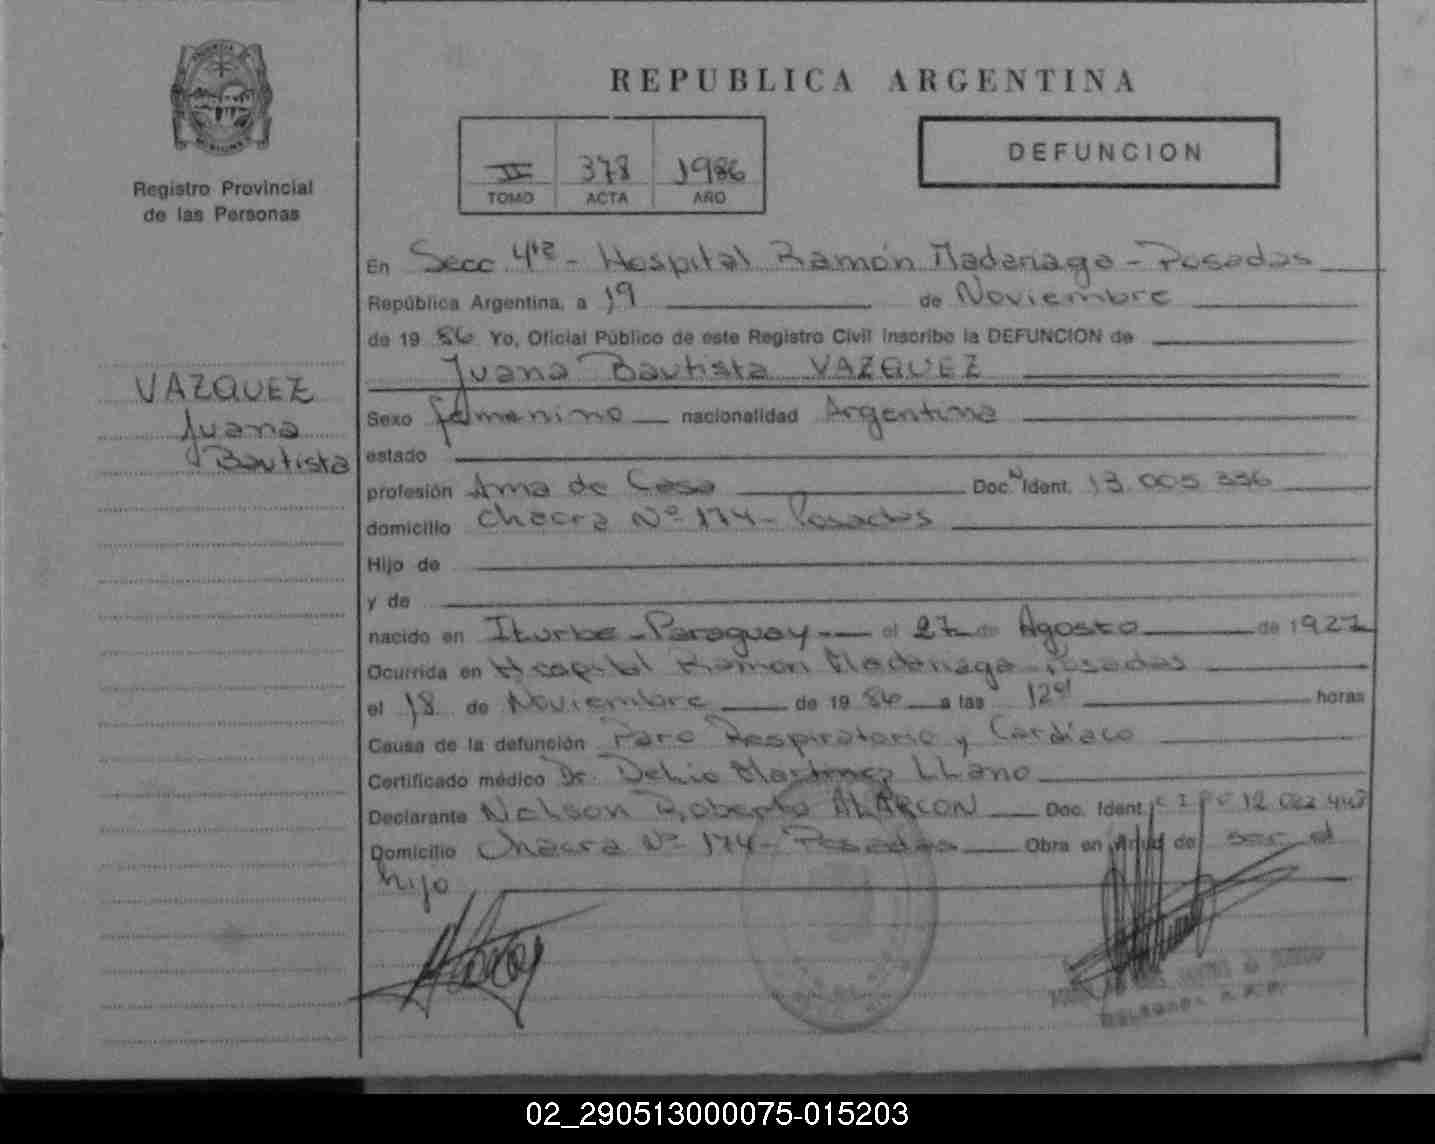 Registro Provincial
de las Personas
REPUBLICA ARGENTINA
DEFUNCION
II 378 1986
TOMO ACTA AÑO
En Secc. 4ta - Hospital Ramón Madariaga - Posadas
República Argentina, a 19 de Noviembre
de 19 86 Yo, Oficial Público de este Registro Civil inscribo la DEFUNCION de
Juana Bautista VAZQUEZ
VAZQUEZ
Juana
Bautista
Sexo femenino nacionalidad Argentina
estado
profesión Ama de Casa Doc. Ident. 13.005.336
domicilio Chacra Nº 174 - Posadas
Hijo de
y de
nacido en Iturbe - Paraguay el 27 de Agosto de 1927
Ocurrida en Hospital Ramón Madariaga - Posadas
el 18 de Noviembre de 19 86 a las 12 horas
Causa de la defunción Paro Respiratorio y Cardíaco
Certificado médico Dr. Delio Martinez LLano
Declarante Nelson Roberto ALARCON Doc. Ident.
Domicilio Chacra Nº 174 - Posadas Obra en virtud de ser el
hijo
02_290513000075-015203